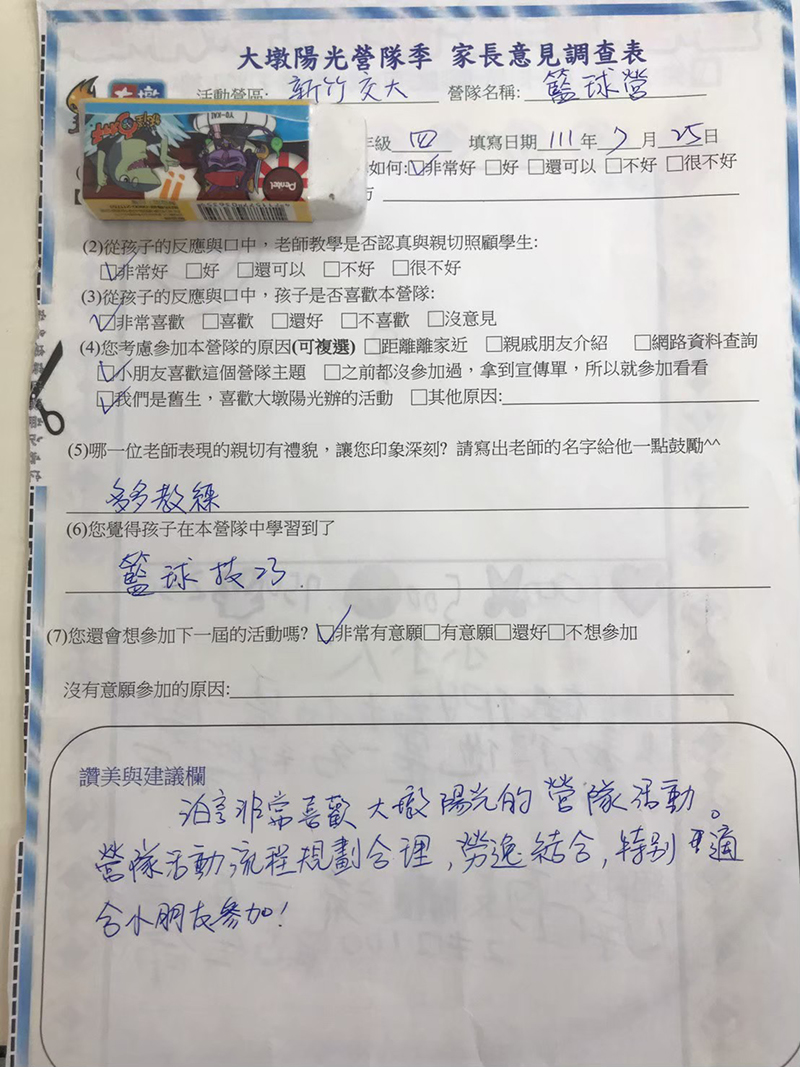 大墩陽光營隊季 家長意見調查表
大墩
活動營區: 新竹交大 營隊名稱: 籃球營
YO-KAI
Pentel
年級 四 填寫日期 111 年 7 月 25 日
如何:☑非常好 □好 □還可以 □不好 □很不好
(2)從孩子的反應與口中,老師教學是否認真與親切照顧學生:
☑非常好 □好 □還可以 □不好 □很不好
(3)從孩子的反應與口中,孩子是否喜歡本營隊:
☑非常喜歡 □喜歡 □還好 □不喜歡 □沒意見
(4)您考慮參加本營隊的原因(可複選) □距離離家近 □親戚朋友介紹 □網路資料查詢
☑小朋友喜歡這個營隊主題 □之前都沒參加過,拿到宣傳單,所以就參加看看
☑我們是舊生,喜歡大墩陽光辦的活動 □其他原因:
(5)哪一位老師表現的親切有禮貌,讓您印象深刻? 請寫出老師的名字給他一點鼓勵^^
多多教練
(6)您覺得孩子在本營隊中學習到了
籃球技巧.
(7)您還會想參加下一屆的活動嗎? ☑非常有意願□有意願□還好□不想參加
沒有意願參加的原因:
讚美與建議欄
非常喜歡大墩陽光的營隊活動。
營隊活動流程規劃合理,勞逸結合,特別適
合小朋友參加!